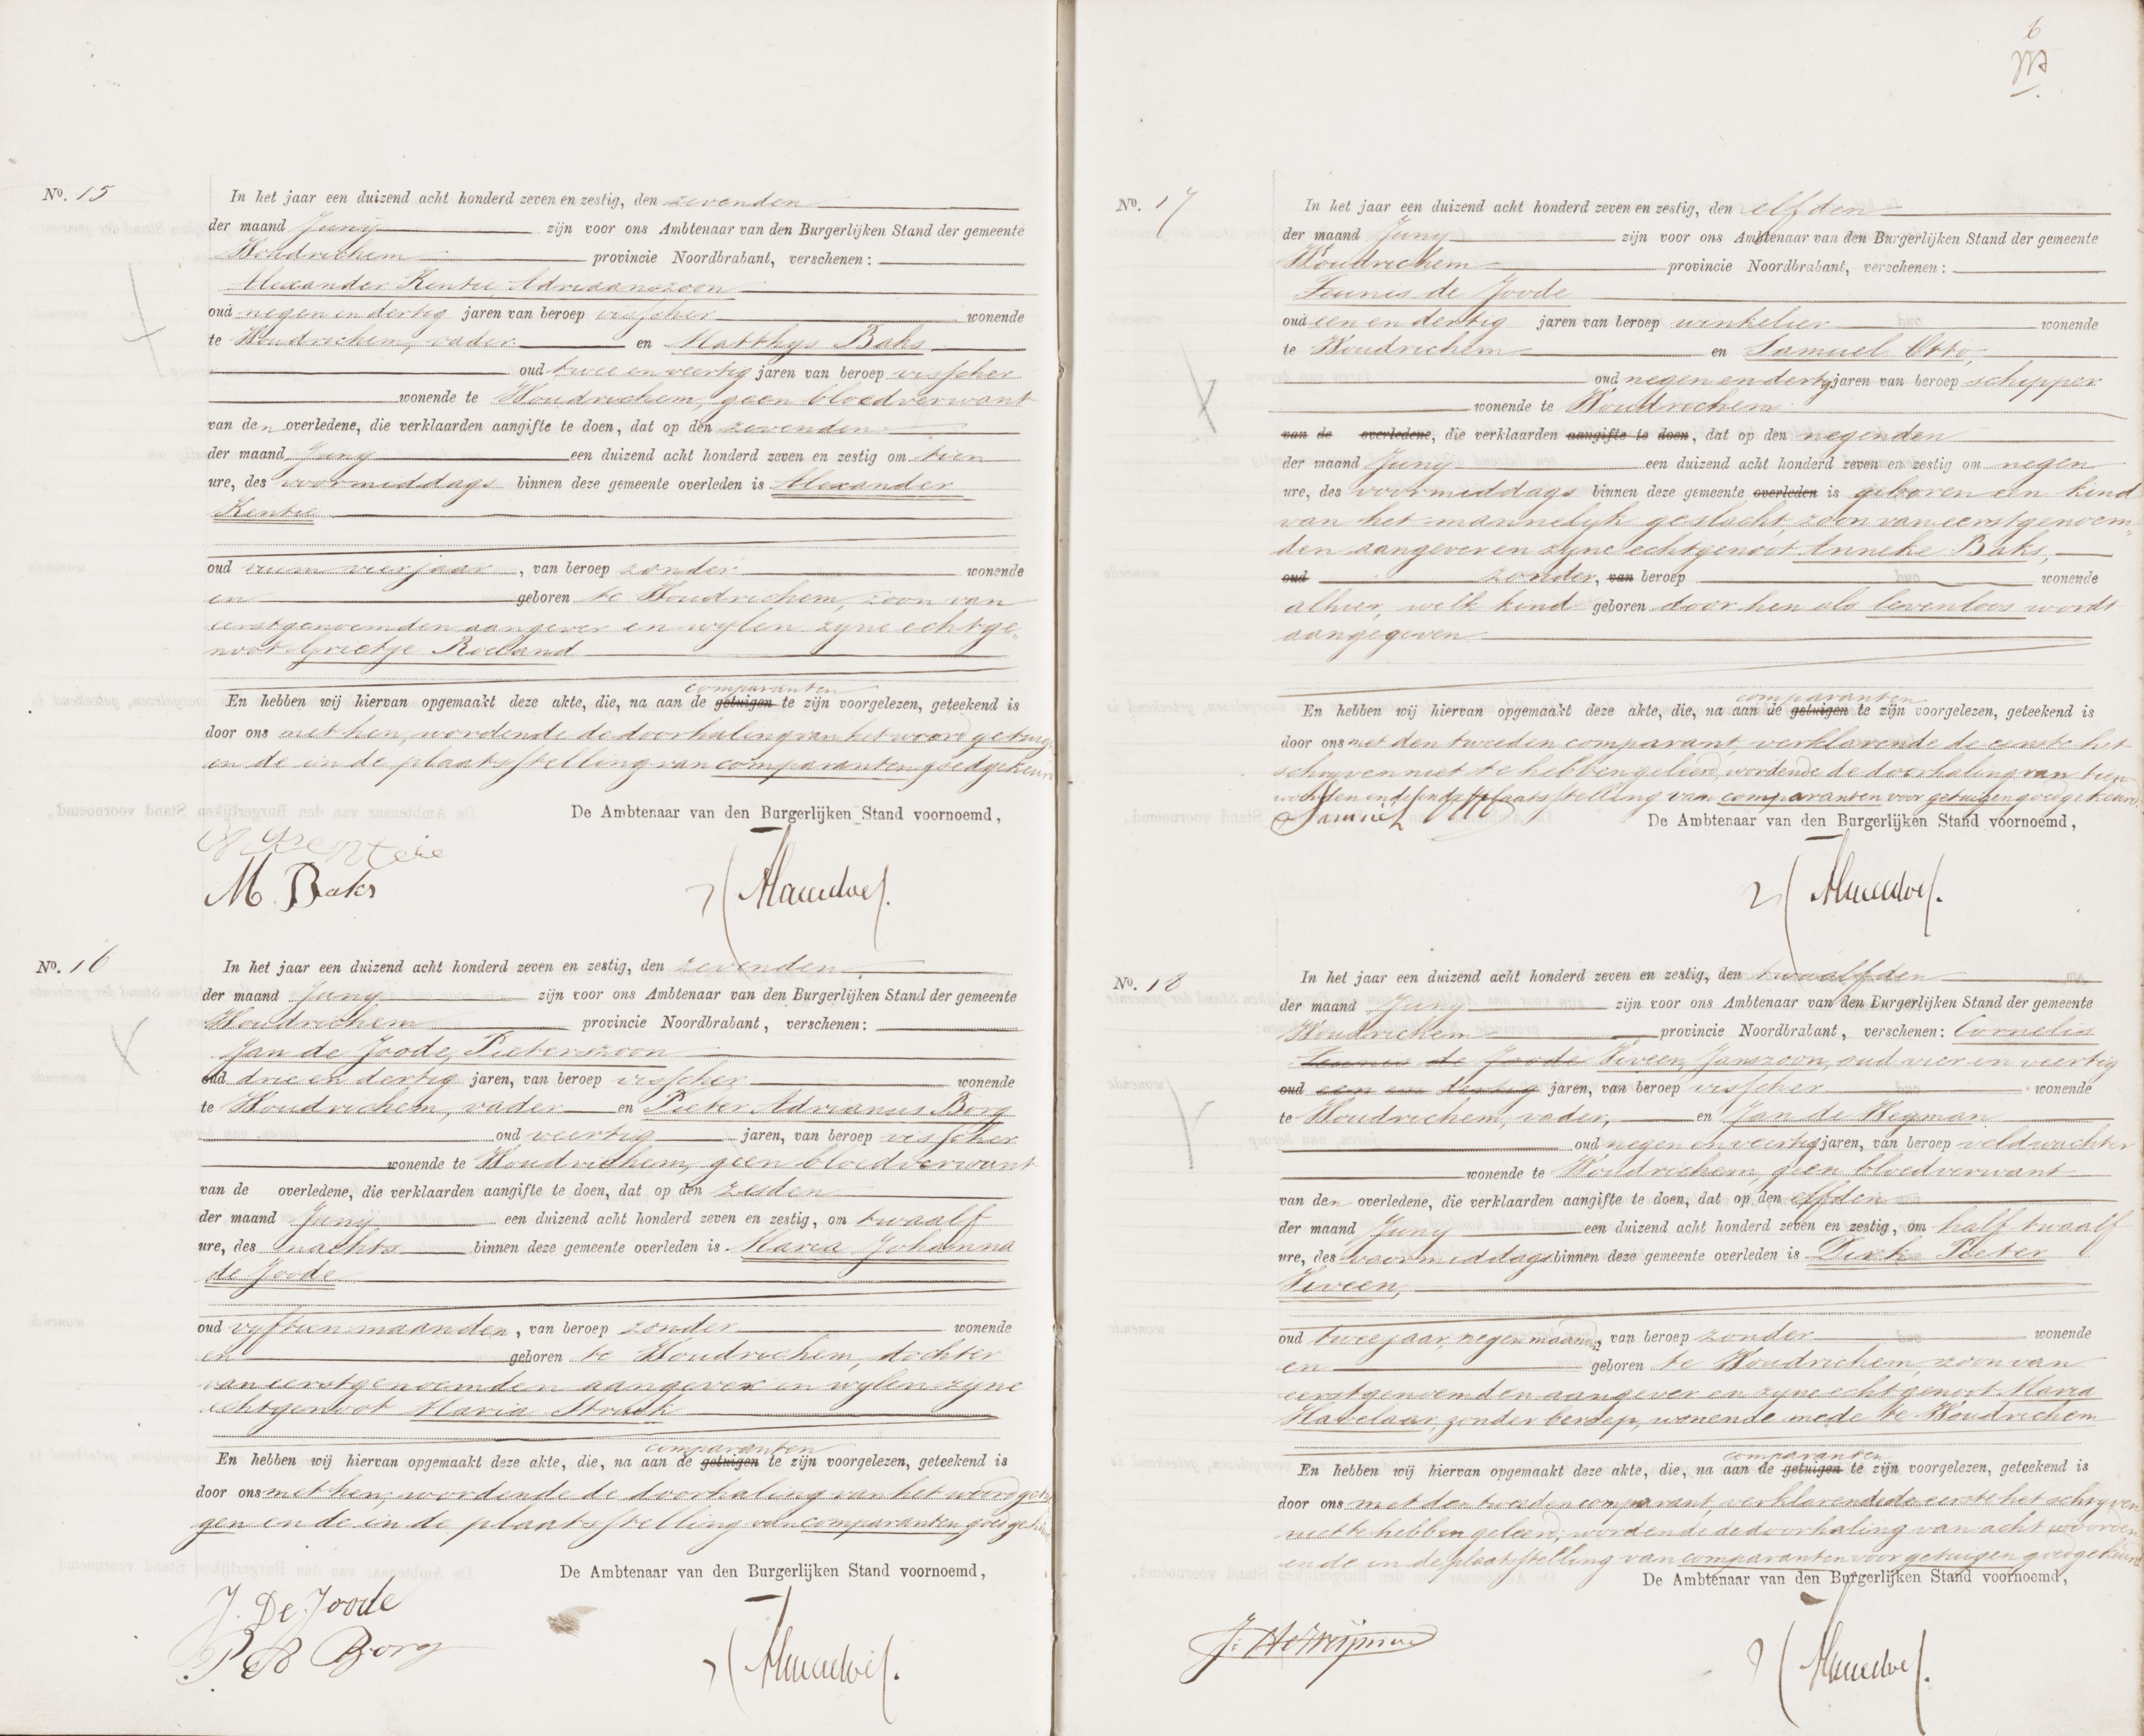 No. 15
In het jaar een duizend acht honderd zeven en zestig, den zevenden
der maand Juny zijn voor ons Ambtenaar van den Burgerlijken Stand der gemeente
Woudrichem provincie Noordbrabant, verschenen:
Alexander Kentie, Adriaanszoon
oud negen en dertig jaren van beroep visscher wonende
te Woudrichem, vader en Matthys Baks
oud twee en veertig jaren van beroep visscher
wonende te Woudrichem, geen bloedverwant
van den overledene, die verklaarden aangifte te doen, dat op den zevenden
der maand Juny een duizend acht honderd zeven en zestig om tien
ure, des voormiddags binnen deze gemeente overleden is Alexander
Kentie
oud ruim vier jaar, van beroep zonder wonende
en geboren te Woudrichem, zoon van
eerstgenoemden aangever en wylen zyne echtge-
noot Grietje Roeland
comparanten
En hebben wij hiervan opgemaakt deze akte, die, na aan de getuigen te zijn voorgelezen, geteekend is
door ons met hen, wordende de doorhaling van het woord getuigen
en de in de plaatsstelling van comparanten goedgekeurd
De Ambtenaar van den Burgerlijken Stand voornoemd,
A Kentie
M. Baks
No. 16
In het jaar een duizend acht honderd zeven en zestig, den zevenden
der maand Juny zijn voor ons Ambtenaar van den Burgerlijken Stand der gemeente
Woudrichem provincie Noordbrabant, verschenen:
Jan de Joode, Pieterszoon
oud drie en dertig jaren, van beroep visscher wonende
te Woudrichem, vader en Pieter Adrianus Borg
oud veertig jaren, van beroep visscher
wonende te Woudrichem, geen bloedverwant
van de overledene, die verklaarden aangifte te doen, dat op den zesden
der maand Juny een duizend acht honderd zeven en zestig, om twaalf
ure, des nachts binnen deze gemeente overleden is Maria Johanna
de Joode
oud vyftien maanden, van beroep zonder wonende
en geboren te Woudrichem, dochter
van eerstgenoemden aangever en wylen zyne
echtgenoot Maria Struik
comparanten
En hebben wij hiervan opgemaakt deze akte, die, na aan de getuigen te zijn voorgelezen, geteekend is
door ons met hen, wordende de doorhaling van het woord getui-
gen en de in de plaatsstelling van comparanten goedgekeurd
De Ambtenaar van den Burgerlijken Stand voornoemd,
J. De Joode
P A Borg
6
No. 17
In het jaar een duizend acht honderd zeven en zestig, den elfden
der maand Juny zijn voor ons Ambtenaar van den Burgerlijken Stand der gemeente
Woudrichem provincie Noordbrabant, verschenen:
Teunis de Joode
oud een en dertig jaren van beroep winkelier wonende
te Woudrichem en Samuel Otto,
oud negen en dertig jaren van beroep schipper
wonende te Woudrichem
van de overledene, die verklaarden aangifte te doen, dat op den negenden
der maand Juny een duizend acht honderd zeven en zestig om negen
ure, des voormiddags binnen deze gemeente overleden is geboren een kind
van het mannelyk geslacht, zoon van eerstgenoem-
den aangever en zyne echtgenoot Anneke Baks,
oud zonder, van beroep wonende
alhier, welk kind geboren door hen als levenloos wordt
aangegeven
comparanten
En hebben wij hiervan opgemaakt deze akte, die, na aan de getuigen te zijn voorgelezen, geteekend is
door ons met den tweeden comparant, verklarende de eerste het
schryven niet te hebben geleerd, wordende de doorhaling van tien
woorden en de in de plaatsstelling van comparanten voor getuigen goedgekeurd
Samuel Otto
De Ambtenaar van den Burgerlijken Stand voornoemd,
No. 18
In het jaar een duizend acht honderd zeven en zestig, den twaalfden
der maand Juny zijn voor ons Ambtenaar van den Burgerlijken Stand der gemeente
Woudrichem provincie Noordbrabant, verschenen: Cornelis
Teunis de Joode Viveen, Janszoon, oud vier en veertig
oud een en dertig jaren, van beroep visscher wonende
te Woudrichem, vader, en Jan de Weyman
oud negen en veertig jaren, van beroep veldwachter
wonende te Woudrichem, geen bloedverwant
van den overledene, die verklaarden aangifte te doen, dat op den elfden
der maand Juny een duizend acht honderd zeven en zestig, om half twaalf
ure, des voormiddags binnen deze gemeente overleden is Dirk Pieter
Viveen,
oud twee jaar, negen maand, van beroep zonder wonende
en geboren te Woudrichem, zoon van
eerstgenoemden aangever en zyne echtgenoot Maria
Havelaar, zonder beroep, wonende mede te Woudrichem
comparanten
En hebben wij hiervan opgemaakt deze akte, die, na aan de getuigen te zijn voorgelezen, geteekend is
door ons met den tweeden comparant, verklarende de eerste het schryven
niet te hebben geleerd; wordende de doorhaling van acht woorden
en de in de plaatsstelling van comparanten voor getuigen goedgekeurd
De Ambtenaar van den Burgerlijken Stand voornoemd,